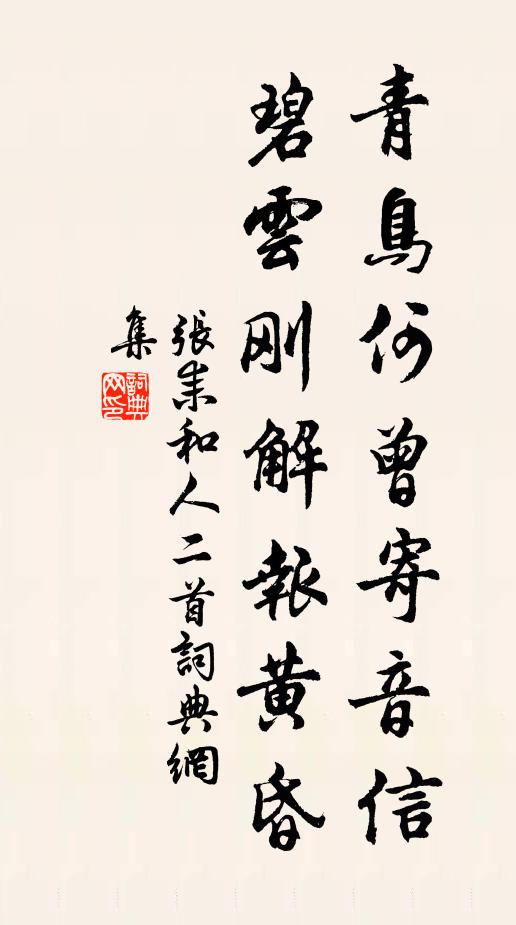 青鳥何曾寄音信
碧雲剛解報黃昏
張耒和人二首詞典網
集
詞典
网印